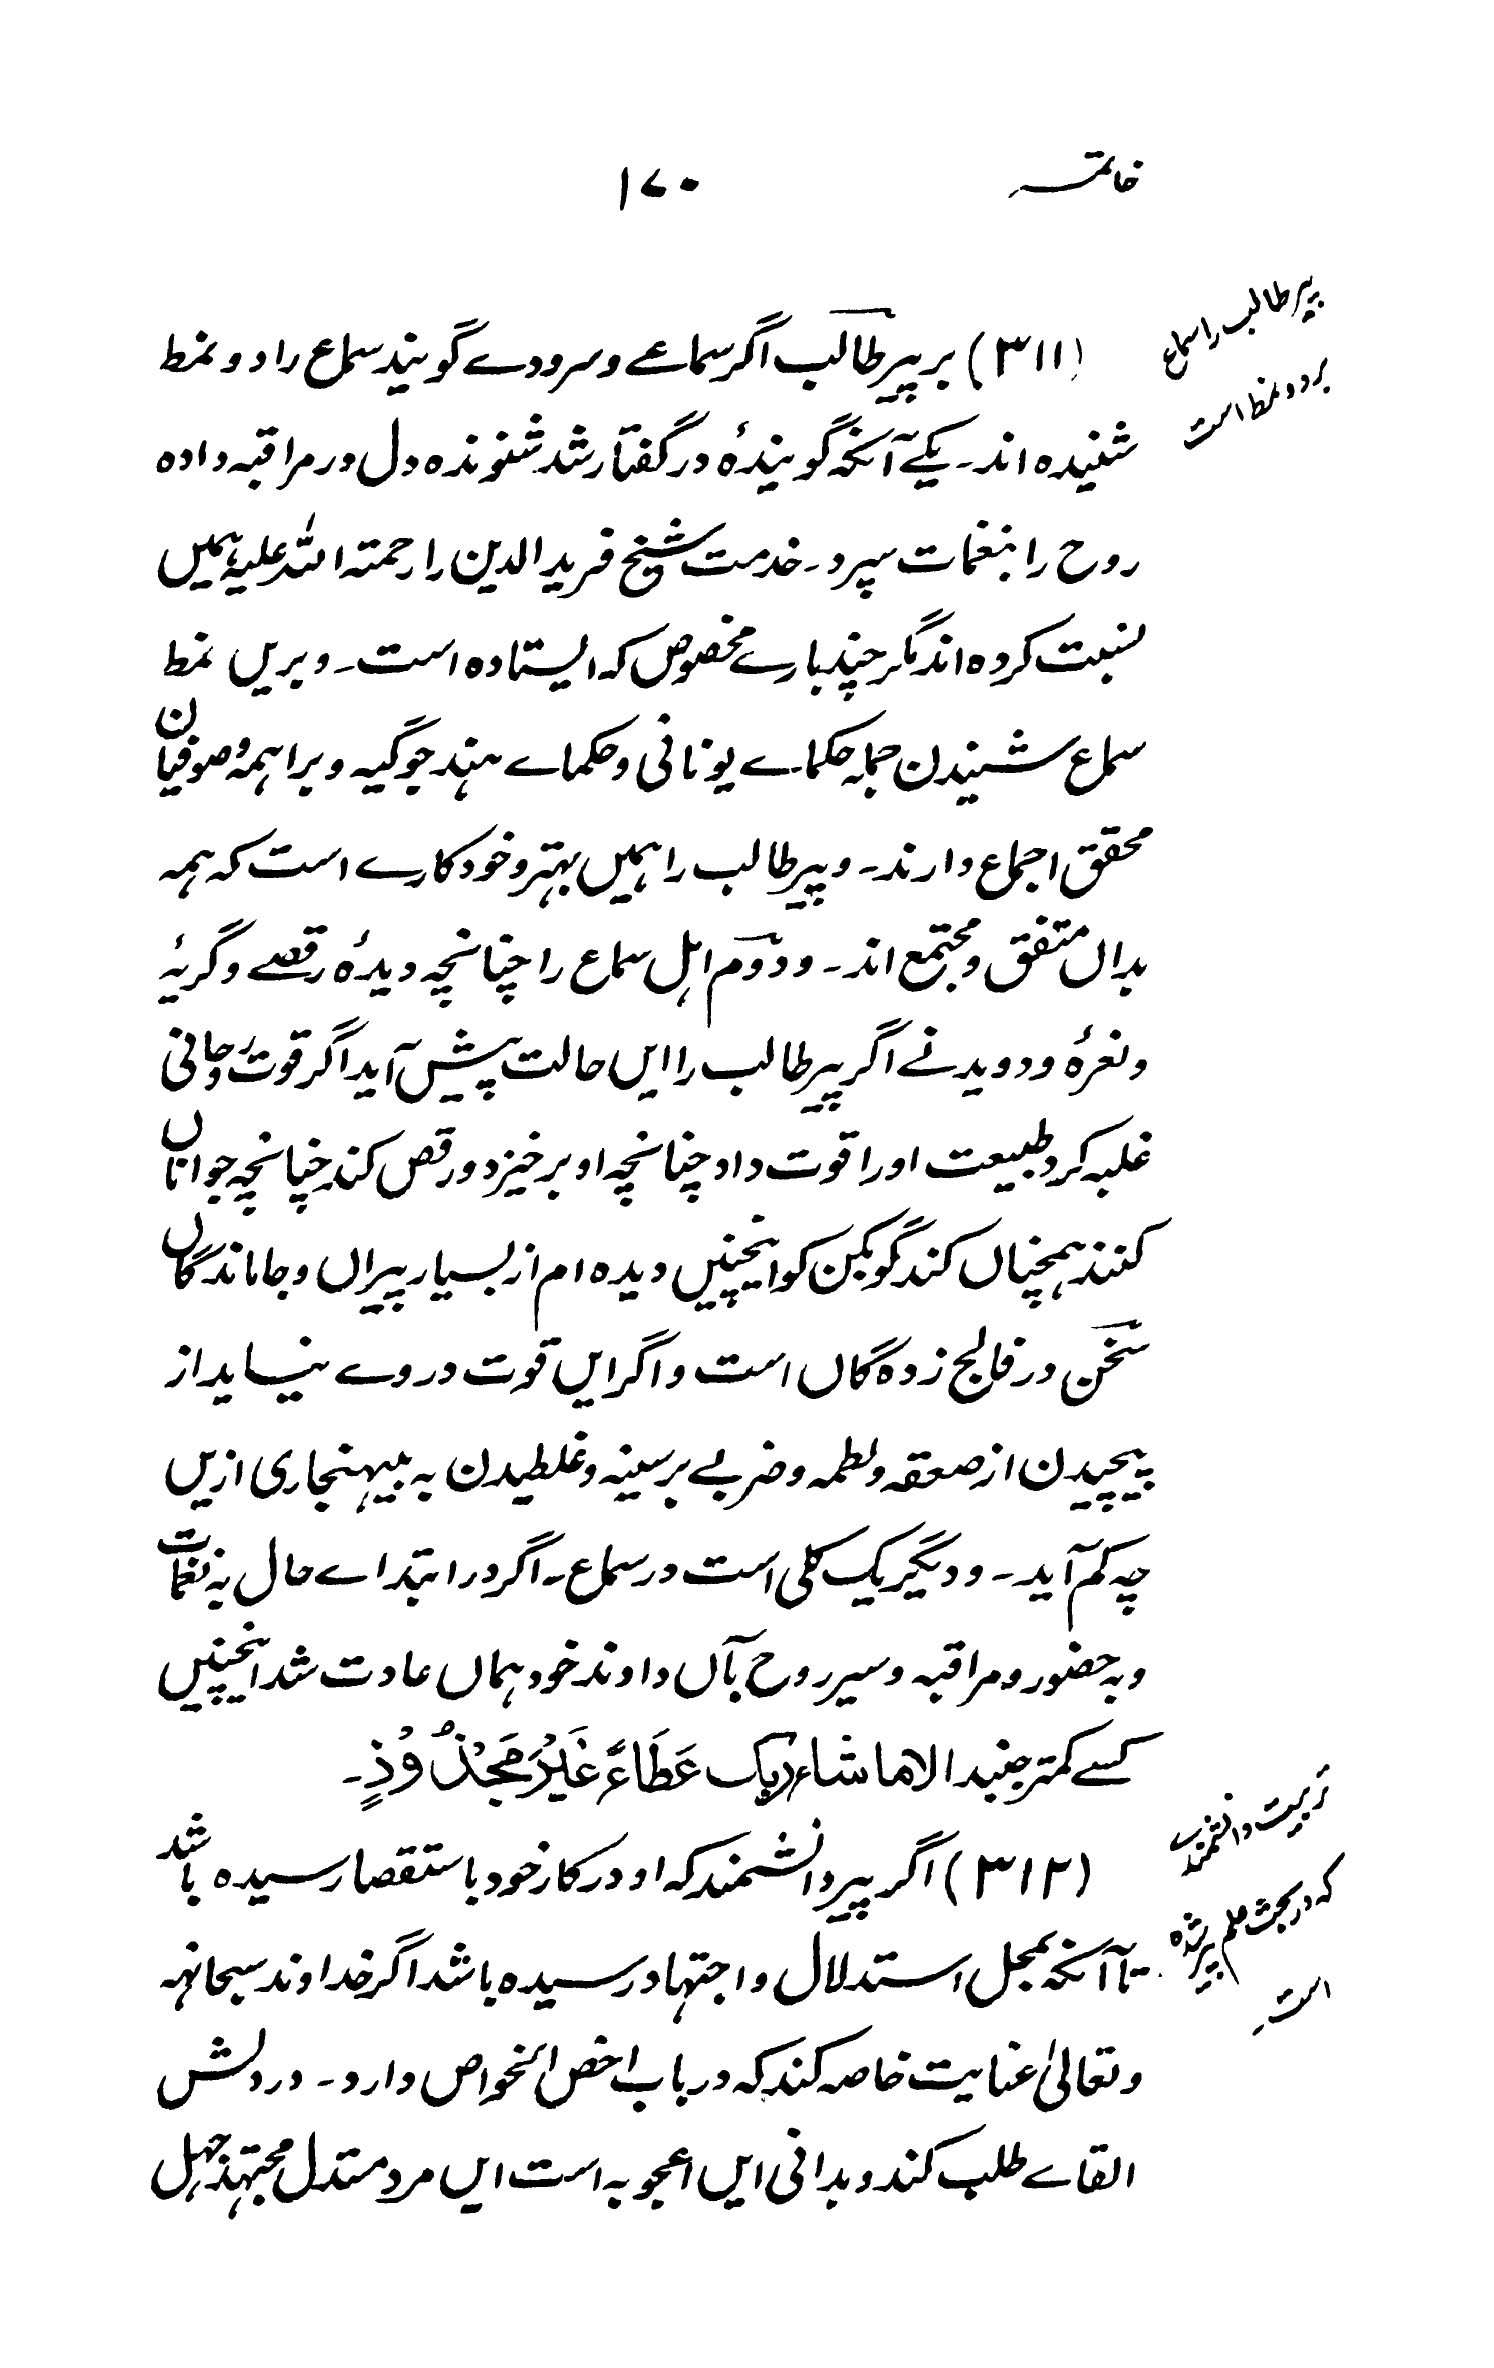 خاتمہ ۱۷۰
پیر طالب را سماع
بر دو نمط است
(۳۱۱) بر پیر طالب اگر سماعے و سرودے گویند سماع را دو نمط
شنیده اند۔ یکے آنکہ گویندۂ در گفتار شد شنونده دل در مراقبہ داده
روح را بنغمات سپرد۔ خدمت شیخ فرید الدین را رحمتہ اللہ علیہ ہمیں
نسبت کرده اند مگر چند بارے مخصوص کہ ایستاده است۔ و بریں نمط
سماع شنیدن جملہ حکماے یونانی و حکماے ہند جوگیہ و براہمہ و صوفیان
محقق اجماع دارند۔ و پیر طالب را ہمیں بہتر و خود کارے است کہ ہمہ
بداں متفق و مجتمع اند۔ و دوم اہل سماع را چنانچہ دیدۂ رقصے و گریۂ
و نعرۂ و دویدنے اگر پیر طالب را ایں حالت پیش آید اگر قوت روحانی
غلبہ کرد طبیعت او را قوت داد چنانچہ او بر خیزد و رقص کند چنانچہ جواناں
کنند ہمچناں کند گو بکن کو اینچنیں دیده ام از بسیار پیراں و جاماندگاں
سخن در فالج زده گاں است و اگر ایں قوت در وے نیاید از
پیچیدن از صعقہ و لطمہ و ضربے بر سینہ و غلطیدن بہ بیہنجاری ازیں
چہ کم آید۔ و دیگر یک کلی است در سماع۔ اگر در ابتداے حال بہ نغمات
و بہ حضور و مراقبہ و سیر روح بآں داوند خود ہماں عادت شد اینچنیں
کسے کمتر جنبد الا ماشاء ربک عَطَاءً غَیْرَ مَجْذُوْذٍ۔
تربیت دانشمندے
کہ در بحث علم پیر شده
است
(۳۱۲) اگر پیر دانشمند کہ او در کار خود باستقصا رسیده باشد
تا آنکہ بمحل استدلال و اجتہاد رسیده باشد اگر خداوند سبحانہ
و تعالیٰ عنایت خاصہ کند کہ در باب اخص الخواص دارد۔ در دلش
القاے طلب کند و بدانی ایں اعجوبہ است ایں مرد مستدل مجتہد جہل